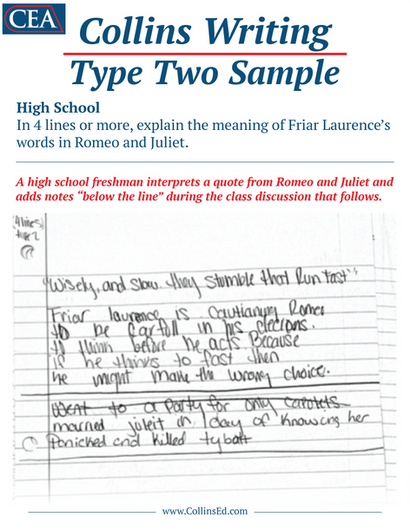 CEA
Collins Writing
Type Two Sample
High School
In 4 lines or more, explain the meaning of Friar Laurence's
words in Romeo and Juliet.
A high school freshman interprets a quote from Romeo and Juliet and
adds notes "below the line" during the class discussion that follows.
4 lines
type 2
"Wisely, and slow. they stumble that run fast"
Friar laurence is cautianyng Romeo
to be carfull in his decions.
to think before he acts Because
if he thinks to fast then
he might make the wrong choice.
Went to a party for only capolets
married joleit in 1 day of knowing her
Panicked and killed tybalt
www.CollinsEd.com